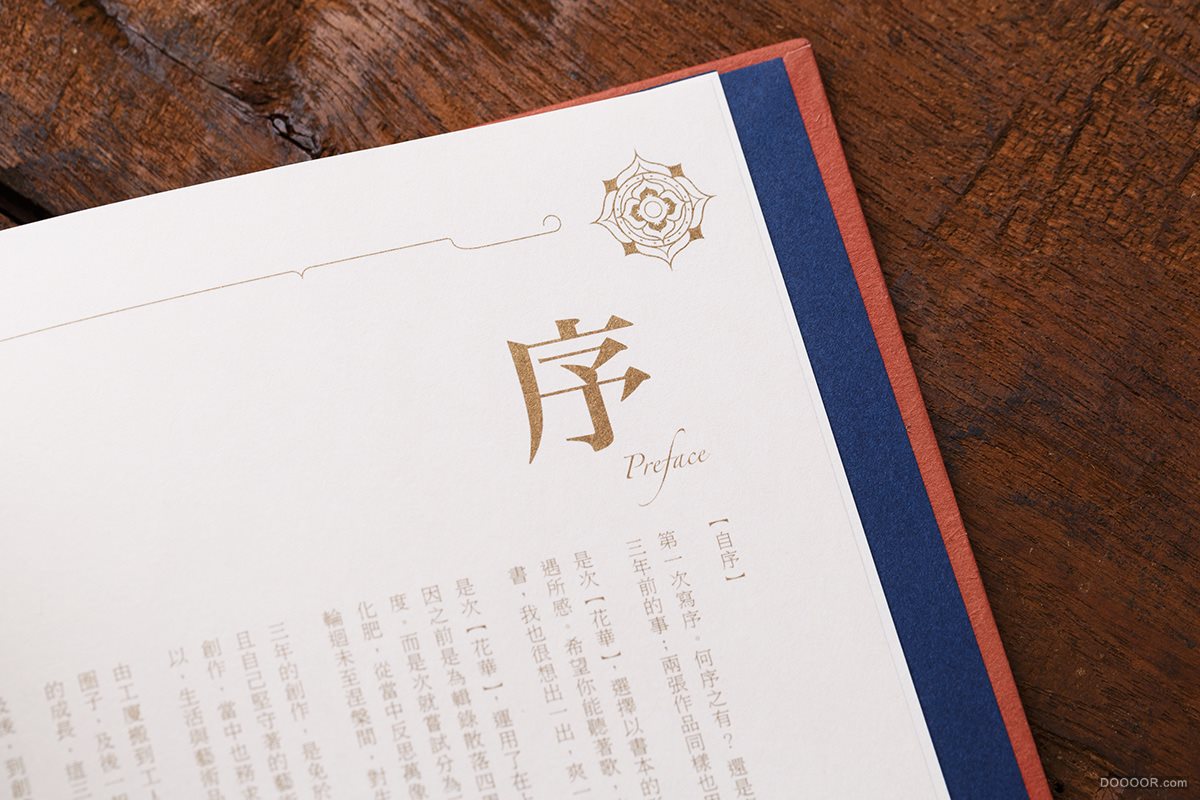 序
Preface
【自序】
第一次寫序。何序之有？還是
三年前的事；兩張作品同樣也
是次【花華】，選擇以書本的
遇所感。希望你能聽著歌，
書，我也很想出一出，爽一
是次【花華】，運用了在
因之前是為輯錄散落四
度。而是次就嘗試分為
化肥，從當中反思萬像
輪迴未至涅槃間，對
三年的創作，是免於
且自己堅守著的藝
創作，當中也務求
以，生活與藝術
由工廈搬到工
圈子，及後一
的成長，這三
後，到創
DOOOOR.com